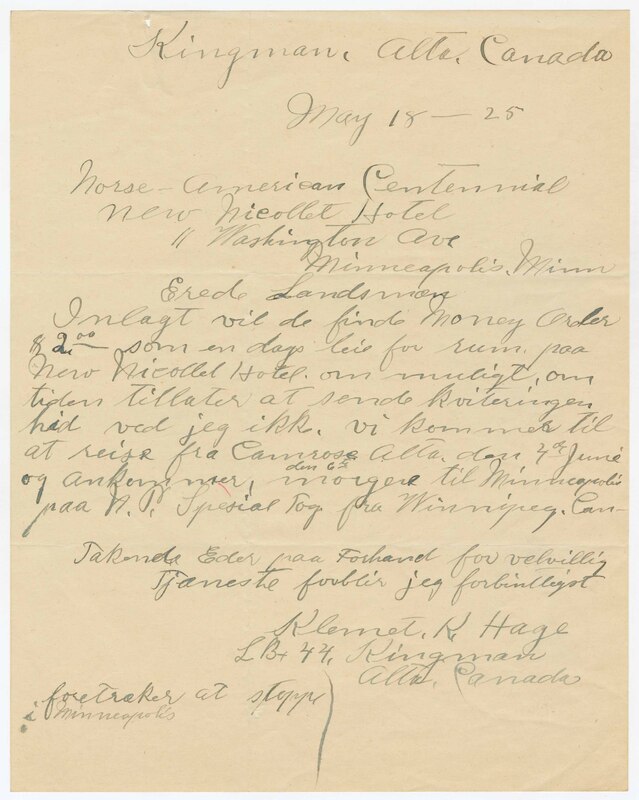 Kingman, Alta, Canada
May 18 — 25
Norse-American Centennial
New Nicollet Hotel
11 Washington Ave
Minneapolis, Minn
Erede Landsmæn
Inlagt vil de finde Money Order
$ 2.00 som en dags leie for rum paa
New Nicollet Hotel. om muligt, om
tiden tillater at sende kviteringen
hid ved jeg ikk. vi kommer til
at reise fra Camrose Alta. den 4de June
og Ankommer, den 6te morgen til Minneapolis
paa N.P. Spesial Tog fra Winnipeg. Can-
Takende Eder paa Forhand for velvillig
Tjæneste forblir jeg forbintligst
Klemet. K. Hage
L Bx 44, Kingman
Alta, Canada
foretræker at stoppe
i Minneapolis